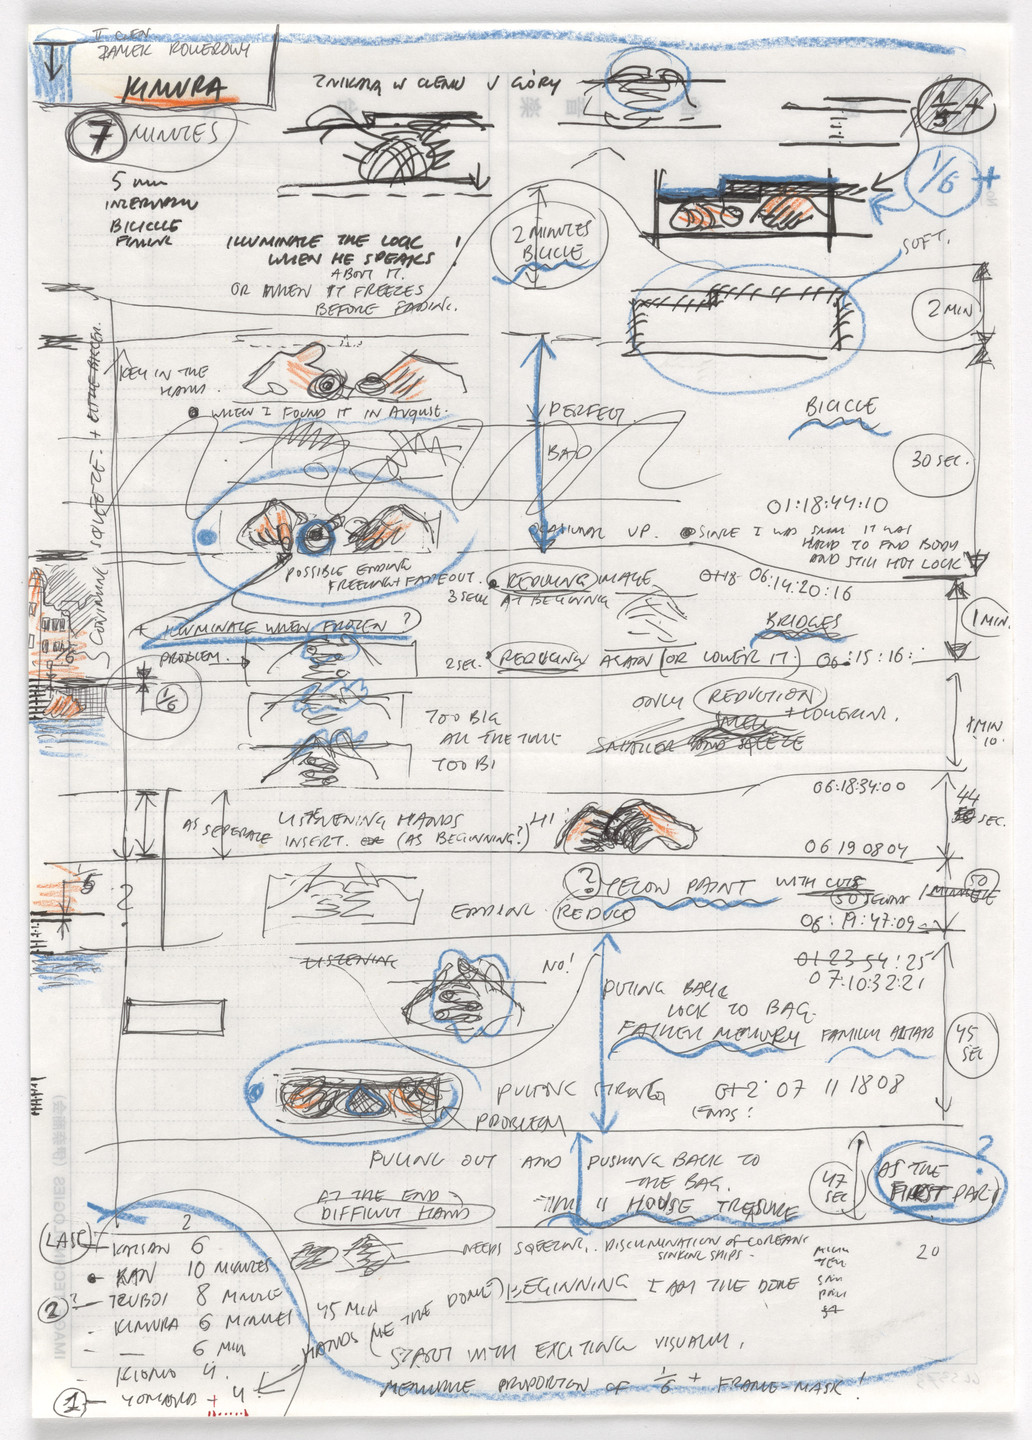 II CIEŃ
DAMEK ROWEROWY
KIMURA
ZNIKAJĄ W CIENIU U GÓRY
7 MINUTES
5 min
INTERVIEW
BICICLE
1/5 +
1/6 +
SOFT.
ILLUMINATE THE LOCK !
WHEN HE SPEAKS
ABOUT IT.
OR WHEN IT FREEZES
BEFORE ENDING.
2 MINUTES
BICICLE
2 MIN
KEY IN THE
HAND.
WHEN I FOUND IT IN AUGUST.
PERFECT
BAD
BICICLE
30 SEC.
01:18:44:10
SINCE I WAS SMALL IT WAS
HARD TO FIND BODY
AND STILL NOT LOCK
POSSIBLE ENDING
FREEZING + FADEOUT.
+ ILLUMINATE WHEN FROZEN ?
REDUCING IMAGE
3 SEC. AT BEGINNING
06:14:20:16
BRIDGES
1 MIN.
PROBLEM.
1/6
2 SEC. REDUCING AGAIN (OR LOWER IT.)
06:15:16:
ONLY REDUCTION
+ LOWERING.
SMALLER AND SQEEZE
1 MIN
10
TOO BIG
ALL THE TIME
TOO BI
06:18:34:00
44 SEC.
AS SEPERATE
LISTENING HANDS
INSERT. (AS BEGINNING?)
HI:
06 19 08 04
1/5
?
? YELOW PAINT WITH CUTS
50 SECONDS
1 MINUTE
50
ENDING REDUCE
06:19:47:09
LISTENING
NO!
01 23 54:25
07.10:32:21
PUTING BACK
LOCK TO BAG.
FATHER MEMORY FAMILY ALTAR
45
SEC
PULING STRONG
07 11 18 08
ENDS!
PROBLEM
PULING OUT AND PUSHING BACK TO
THE BAG.
47
SEC
AS THE
FIRST PART
?
AT THE END -
DIFFICULT HAND
HOUSE TREASURE
2
LAST
KAISAN 6
KAN 10 MINUTES
2 TSUBOI 8 MINUTE
KIMURA 6 MINUTES
- 6 MIN
KIONO 4.
1 - YOMANO + 4
NEEDS SQEEZING.. DISCRIMINATION OF COREANS
SINKING SHIPS -
20
45 MIN
HANDS (ME THE DOME)
BEGINNING I AM THE DOME
START WITH EXCITING VISUALLY,
MEASURE PROPORTION OF 1/6 + FRAME-MASK !